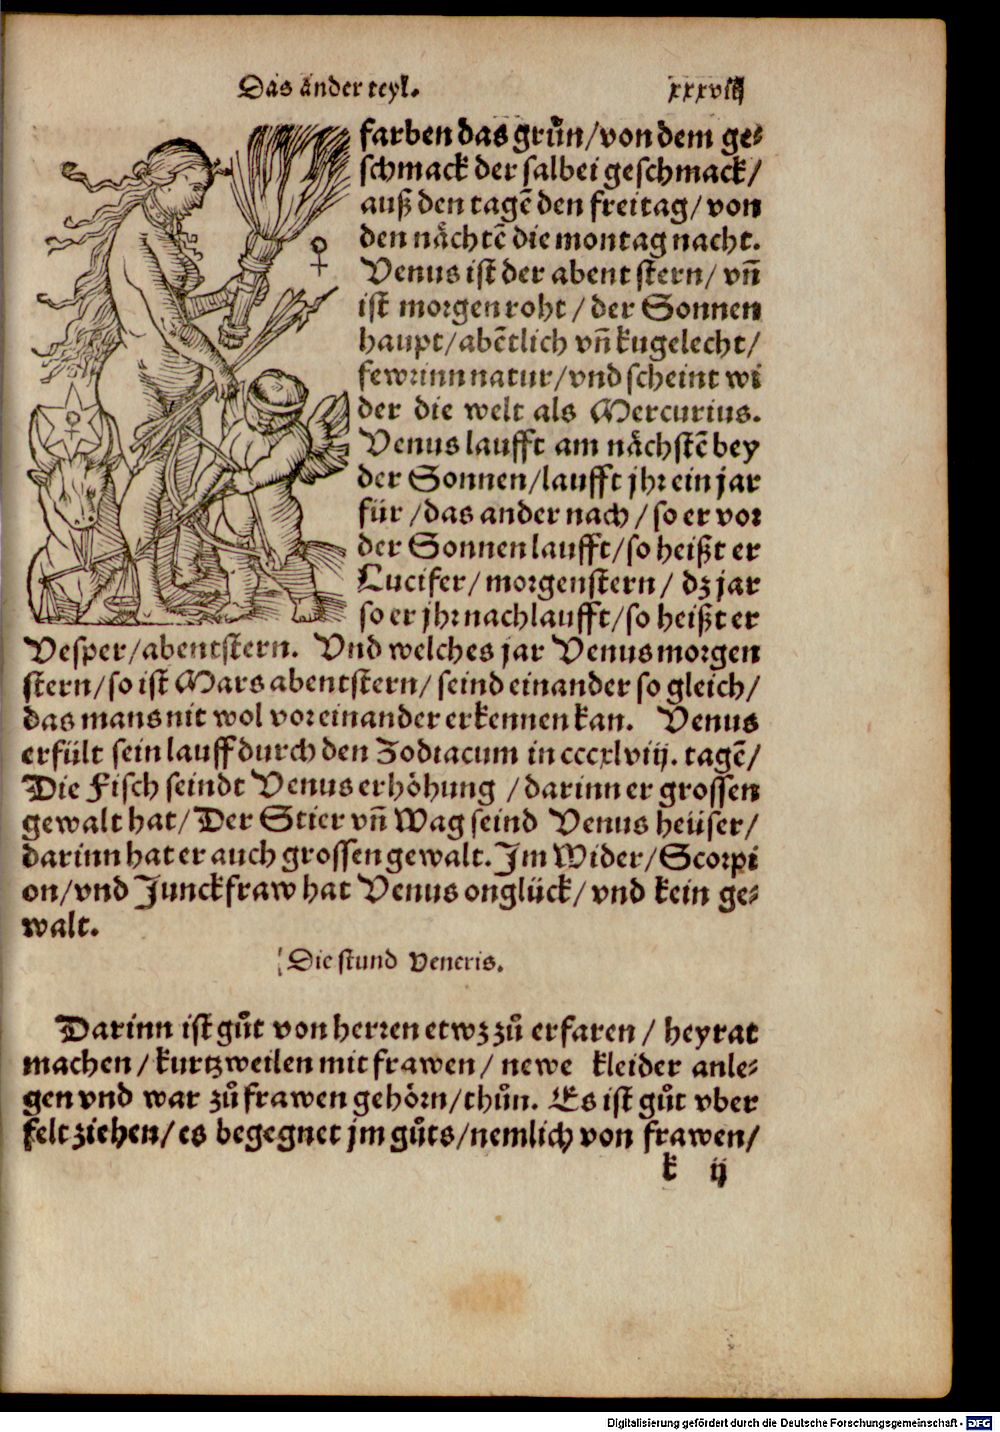 Das ander teyl. xxxviij
farben das grün/von dem ge⸗
schmack der salbei geschmack/
auß den tagē den freitag/ von
den nächtē die montag nacht.
Venus ist der abent stern/ vñ
ist morgenroht / der Sonnen
haupt/abētlich vñ kugelecht/
fewrinn natur/vnd scheint wi
der die welt als Mercurius.
Venus laufft am nächstē bey
der Sonnen/laufft jhr ein jar
für /das ander nach / so er vor
der Sonnen laufft/so heißt er
Lucifer/ morgenstern/ dz jar
so er jhr nachlaufft/so heißt er
Vesper/abentstern. Vnd welches jar Venus morgen
stern/so ist Mars abentstern/ seind einander so gleich/
das mans nit wol vor einander erkennen kan. Venus
erfült sein lauff durch den Zodiacum in cccxlviij. tagē/
Die Fisch seindt Venus erhöhung /darinn er grossen
gewalt hat/ Der Stier vñ Wag seind Venus heüser/
darinn hat er auch grossen gewalt. Im Wider/Scorpi
on/vnd Junckfraw hat Venus onglück/ vnd kein ge⸗
walt.
Die stund Veneris.
Darinn ist gůt von herren etwz zů erfaren / heyrat
machen/kurtzweilen mit frawen/ newe kleider anle⸗
gen vnd war zů frawen gehörn/thůn. Es ist gůt vber
felt ziehen/es begegnet jm gůts/nemlich von frawen/
k ij
Digitalisierung gefördert durch die Deutsche Forschungsgemeinschaft - DFG